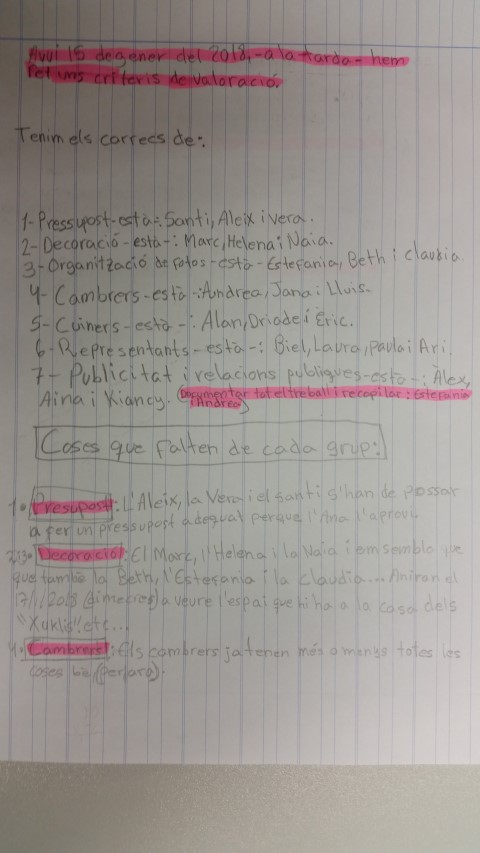 Avui 15 de gener del 2018,-a la tarda- hem
fet uns criteris de valoració.
Tenim els correcs de:
1-Pressupost-està-: Santi, Aleix i Vera.
2-Decoració-està-: Marc, Helena i Naia.
3-Organització de fotos-està-Estefania, Beth i Claudia
4-Cambrers-està-: Andrea, Jana i Lluis.
5-Cuiners-està-: Alan, Oriade i Èric.
6-Representants-està-: Biel, Laura, Paula i Ari.
7-Publicitat i relacions publiques-està-: Àlex,
Aina i Xiancy. (Documentar tot el treball i recopilar: Estefania
i Andrea)
Coses que falten de cada grup:
1. Presupost: L'Aleix, la Vera i el Santi s'han de possar
a fer un pressupost adequat perque l'Ana l'aprovi.
2 i 3. Decoració: El Marc, l'Helena i la Naia i em sembla que
que també la Beth, l'Estefania i la Claudia... Aniran el
17/1/2018 (dimecres) a veure l'espai que hi ha a la casa dels
"Xuklis" etc...
4. Cambrers: Els cambrers ja tenen més o menys totes les
coses bé (per ara).